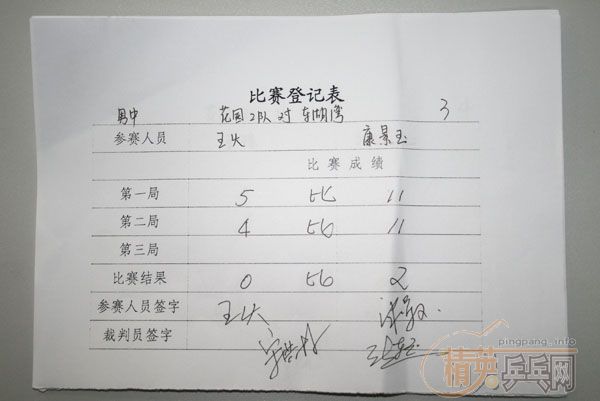 比赛登记表
男中 花园2队 对 东湖湾 3
参赛人员 王火 康景玉
比赛成绩
第一局 5 比 11
第二局 4 比 11
第三局
比赛结果 0 比 2
参赛人员签字 王火
裁判员签字
pingpang.info
精英乒乓网